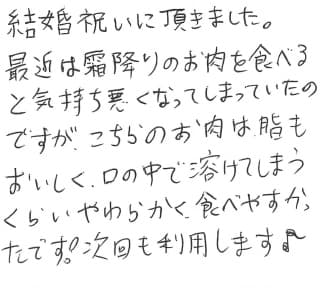 結婚祝いに頂きました。
最近は霜降りのお肉を食べる
と気持ち悪くなってしまっていたの
ですが、こちらのお肉は、脂も
おいしく、口の中で溶けてしまう
くらいやわらかく、食べやすかっ
たです!次回も利用します♪